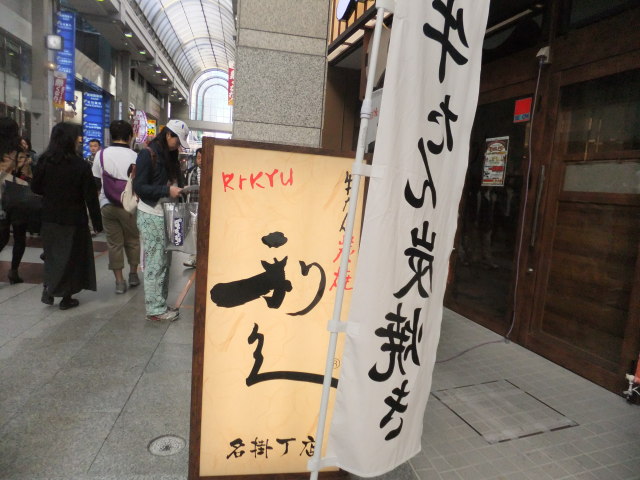 RIKYU
牛たん炭焼
利久
名掛丁店
牛たん炭焼き